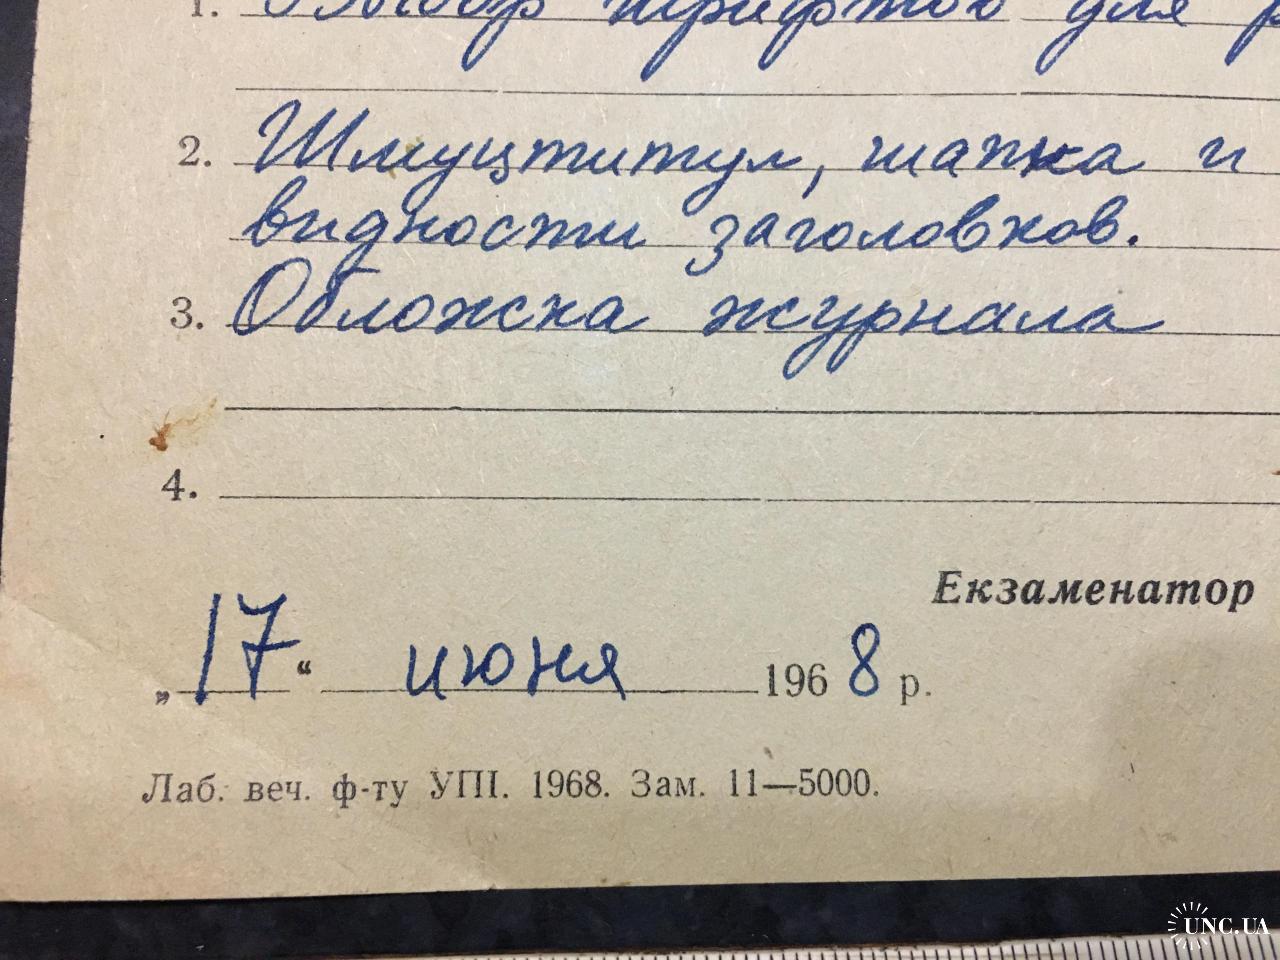 1. Выбор шрифтов для
2. Шмуцтитул, шапка и
видности заголовков.
3. Обложка журнала
4.
Екзаменатор
„17“ июня 1968 р.
Лаб. веч. ф-ту УПІ. 1968. Зам. 11—5000.
UNC.UA